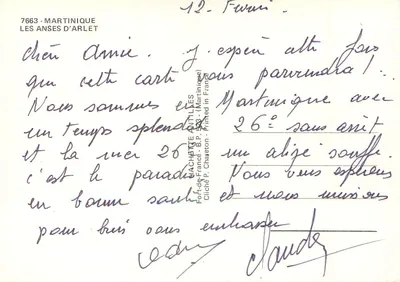 7663 - MARTINIQUE
LES ANSES D'ARLET
12 - Février.
chère Amie. j'espère cette fois
que cette carte vous parviendra!..
Nous sommes en Martinique avec
un temps splendide 26° sans arrêt
et la mer 26° un alizé souffle.
c'est le paradis Nous vous espérons
en bonne santé et nous unissons
pour bien vous embrasser
Claude
HACHETTE ANTILLES
Fort-de-France - B.P. - (Martinique)
Cliché P. Chareton - Printed in France